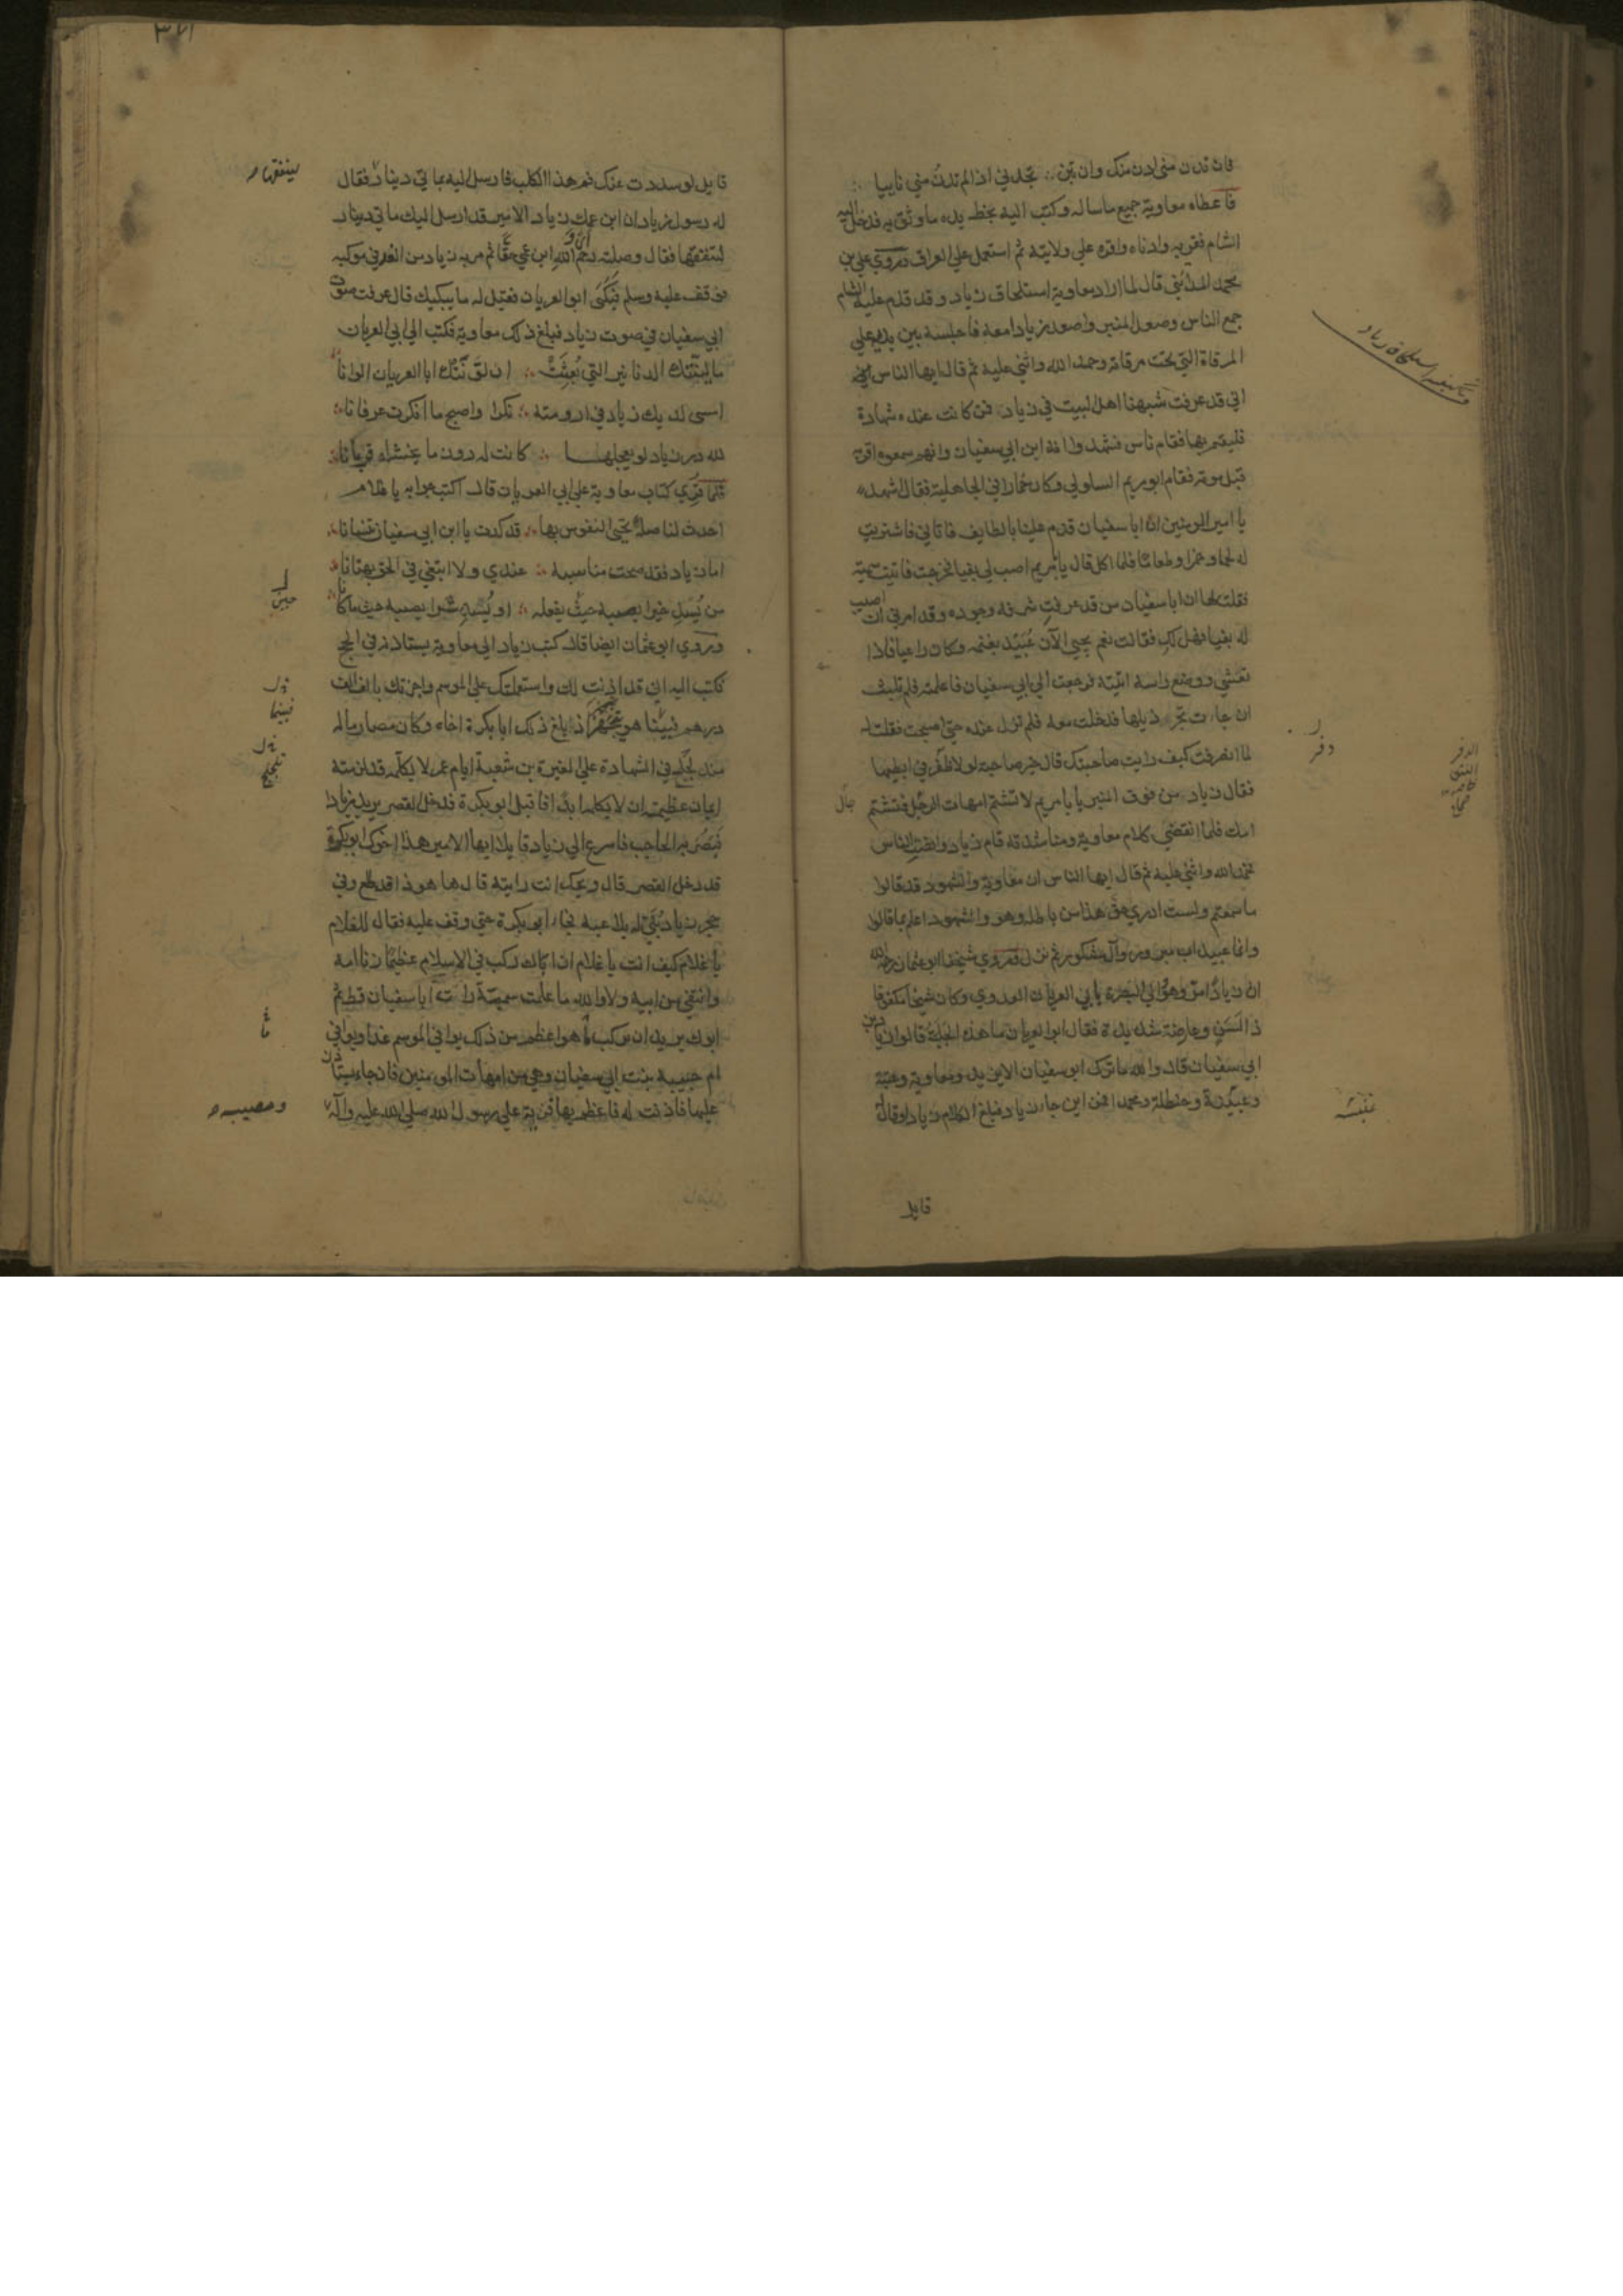 فان تدن مني ادن منك وان تبن ∴ تجدني اذا لم تدن مني نائيا ∴
فاعطاه معاوية جميع ما ساله وكتب اليه بخط يده ما وثق به فدخل اليه
الشام فقربه وادناه واقره علي ولايته ثم استعمله علي العراق وروي علي بن
محمد المدائني قال لما اراد معاوية استلحاق زياد وقد قدم عليه الشام
جمع الناس وصعد المنبر واصعد زيادا معه فاجلسه بين يديه علي
المرقاة التي تحت مرقاته وحمد الله واثني عليه ثم قال ايها الناس
اني قد عرفت شبهنا اهل البيت في زياد فمن كانت عنده شهادة
فليقم بها فقام ناس فشهدوا انه ابن ابي سفيان وانهم سمعوه اقر به
قبل موته فقام ابو مريم السلولي وكان خمارا في الجاهلية فقال اشهد
يا امير المومنين ان ابا سفيان قدم علينا بالطايف فاتاني فاشتريت
له لحما وخمرا وطعاما فلما اكل قال يا با مريم اصب لي بغيا فخرجت فاتيت سمية
فقلت لها ان ابا سفيان من قد عرفت شرفه وجوده وقد امرني ان اصيب
له بغيا فهل لك فقالت نعم يجيي الآن عبيد بغنمه وكان راعيا فاذا
تعشي ووضع راسه اتيته فرجعت الي ابي سفيان فاعلمته فلم تلبث
ان جاءت تجر ذيلها فدخلت معه فلم تزل عنده حتي اصبحت فقلت له
لما انصرفت كيف رايت صاحبتك قال خير صاحبة لولا ظفر في ابطيها
دفر
فقال زياد من فوق المنبر يا با مريم لا تشتم امهات الرجال فتشتم
امك فلما انقضي كلام معاوية ومناشدته قام زياد وانصت الناس
فحمد الله واثني عليه ثم قال ايها الناس ان معاوية والشهود قد قالوا
ما سمعتم ولست ادري حق هذا من باطله وهو والشهود اعلم بما قالوا
وانما عبيد اب مبرور ووال مشكور ثم نزل وروي شيخنا ابو عثمان رحمه الله
ان زيادا مر وهو والي البصرة بابي العريان العدوي وكان شيخا مكفوفا
ذا لسن وعارضة شديدة فقال ابو العريان ما هذه الجلبة قالوا زياد بن
ابي سفيان قال والله ما ترك ابو سفيان الا يزيد ومعاوية وعتبة
وعنبسة وحنظلة ومحمدا فمن اين جاء زياد فبلغ الكلام زيادا وقال له
قايل
٣٧١
قايل لو سددت عنك فم هذا الكلب فارسل اليه بمايتي دينار فقال
له رسول زياد ان ابن عمك زياد الامير قد ارسل اليك مايتي دينار
لتنفقها فقال وصلته رحم اي والله ابن عمي حقا ثم مر به زياد من الغد في موكبه
فوقف عليه وسلم فبكي ابو العريان فقيل له ما يبكيك قال عرفت صوت
ابي سفيان في صوت زياد فبلغ ذلك معاوية فكتب الي ابي العريان
ما لبثتك الدنانير التي بعثت ∴ ان لونتك ابا العريان الوانا
امسي لديك زياد في ارومته ∴ نكرا واصبح ما انكرت عرفانا ∴
لله در زياد لو تعجلها ∴ كانت له دون ما يخشاه قربانا ∴
فلما قري كتاب معاوية علي ابي العريان قال اكتب جوابه يا غلام
احدث لنا صلة تحيي النفوس بها ∴ قد كدت يا ابن ابي سفيان تنسانا ∴
اما زياد فقد صحت مناسبه ∴ عندي ولا ابتغي في الحق بهتانا ∴
من يسد خيرا يصبه حيث يفعله ∴ او يسد شرا يصبه حيث ما كانا
وروي ابو عثمان ايضا قال كتب زياد الي معاوية يستاذنه في الحج
فكتب اليه اني قد اذنت لك واستعملتك علي الموسم واجزتك بالف الف
درهم فبينا هو يتجهز اذ بلغ ذلك ابا بكرة اخاه وكان مصارما له
منذ لجلج في الشهادة علي المغيرة بن شعبة ايام عمر لا يكلمه قد لزمته
ايمان عظيمة ان لا يكلمه ابدا فاقبل ابو بكرة فدخل القصر يريد زيادا
فبصر به الحاجب فاسرع الي زياد قايلا ايها الامير هذا اخوك ابو بكرة
قد دخل القصر قال ويحك انت رايته قال ها هو ذا قد طلع وفي
حجر زياد بني له يلاعبه فجاء ابو بكرة حتي وقف عليه فقال للغلام
يا غلام كيف انت يا غلام ان اباك ركب في الاسلام عظيما زنا امه
وانتفي من ابيه ولا والله ما علمت سمية رات ابا سفيان قط ثم
ابوك يريد ان يركب ما هو اعظم من ذلك يوافي الموسم غدا ويوافي
ام حبيبة بنت ابي سفيان وهي من امهات المومنين فان جاء يستاذن
عليها فاذنت له فاعظم بها فرية علي رسول الله صلي الله عليه وآله
ومصيبة